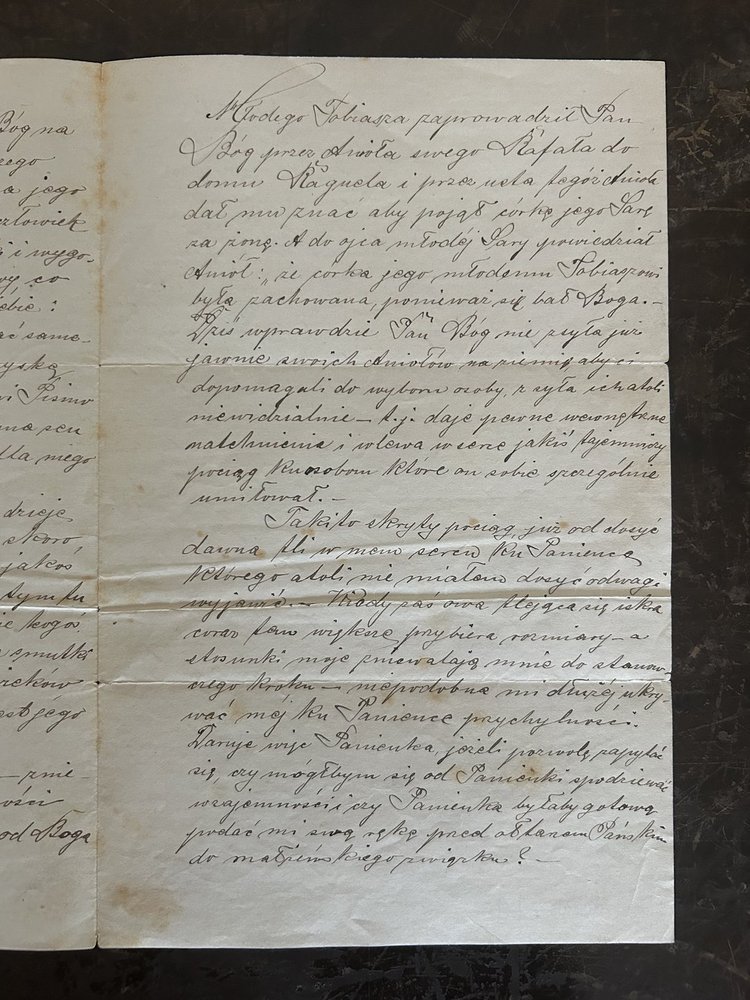 Bóg na
czego
a jego
człowiek
j i wygo-
wy co
ebie:
ać same-
yskę
wi Pismo
ma seu
dla niego
dzieje
skoro
jakoś
tym tu
ie kogo
smutki
wieków
est jego
— zmie-
ości
od Boga
Młodego Tobiasza zaprowadził Pan
Bóg przez Anioła swego Rafała do
domu Raguela i przez usta tegoż Anioła
dał mu znać aby pojął córkę jego Sarę
za żonę. A do ojca młodéj Sary powiedział
Anioł: „że córka jego młodemu Tobiaszowi
była zachowana, ponieważ się bał Boga. —
Dziś wprawdzie Pan Bóg nie zsyła już
jawnie swoich Aniołów na ziemię aby ci
dopomagali do wyboru osoby, zsyła ich atoli
niewidzialnie — t.j. daje pewne wewnętrzne
natchnienia i wlewa w serce jakiś tajemniczy
pociąg ku osobom które on sobie szczególnie
umiłował. —
Takito skryty pociąg, już od dosyć
dawna tli w mem sercu ku Panience
którego atoli nie miałem dosyć odwagi
wyjawić. — Kiedy zaś owa tlejąca się iskra
coraz to większe przybiera rozmiary — a
stosunki moje zniewalają mnie do stanow-
czego kroku — niepodobna mi dłużéj ukry-
wać méj ku Panience przychylności.
Daruje więc Panienka, jeżeli pozwolę zapytać
się, czy mógłbym się od Panienki spodziewać
wzajemności i czy Panienka byłaby gotową
podać mi swą rękę przed ołtarzem Pańskim
do małżeńskiego związku? —